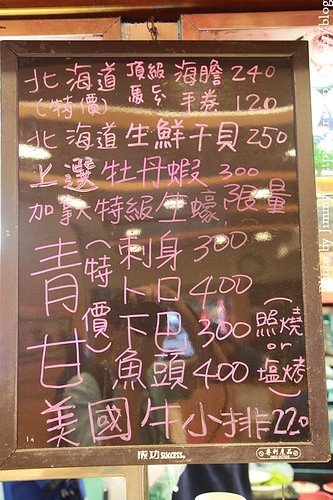 北海道 頂級馬糞 海膽 240
(特價) 手卷 120
北海道生鮮干貝 250
上選牡丹蝦 300
加拿大特級生蠔 限量
青甘 (特價)
刺身 300
卜口 400
下巴 300
魚頭 400
(照燒or塩烤)
美國牛小排 220
成功 SUCCESS.
專利產品